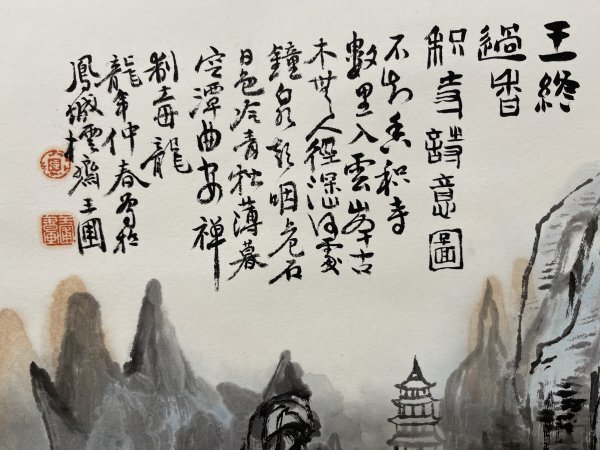 王維
過香
积寺詩意圖
不知香积寺
數里入雲峰古
木無人徑深山何處
鐘泉聲咽危石
日色冷青松薄暮
空潭曲安禪
制毒龍
龍年仲春寫於
鳳城雲 齋王圃